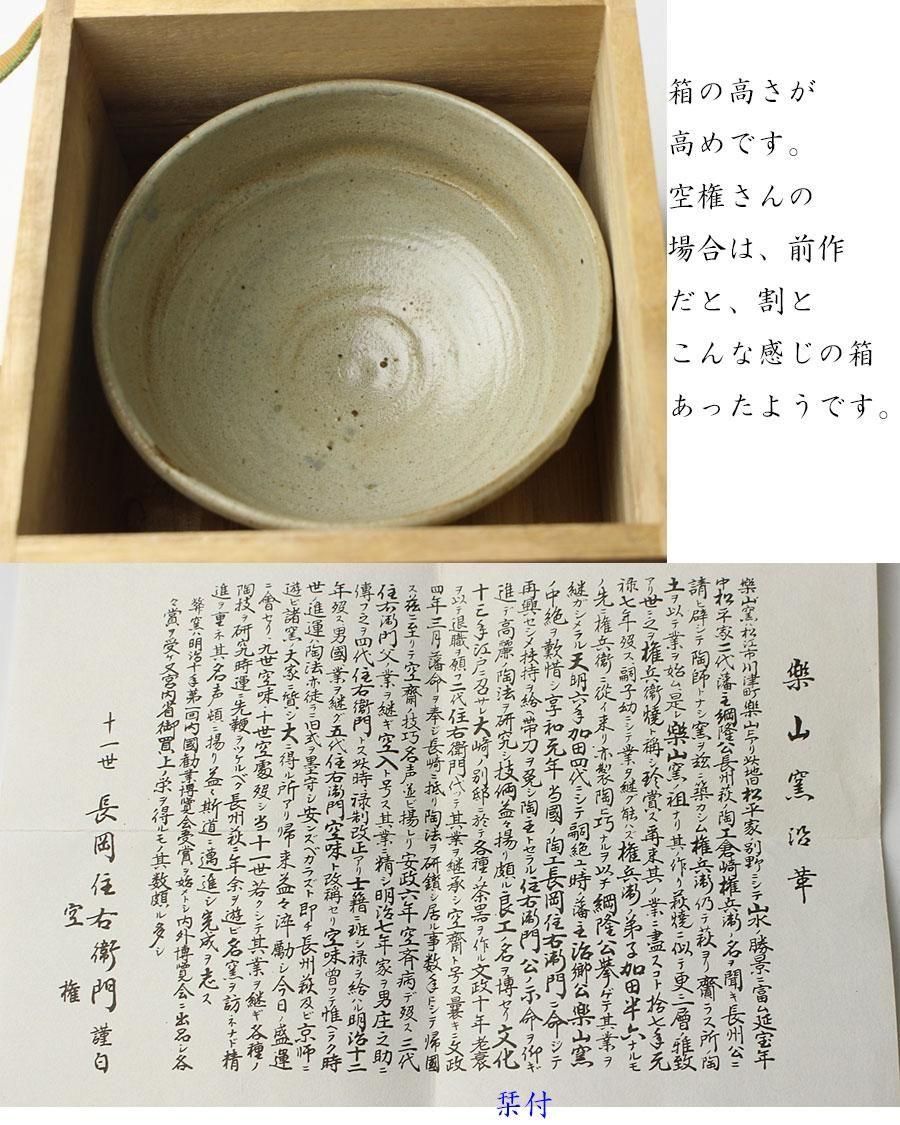 箱の高さが
高めです。
空権さんの
場合は、前作
だと、割と
こんな感じの箱
あったようです。
樂山窯沿革
樂山窯ハ松江市川津町樂山ニアリ此地旧松平家ノ別野ニシテ山水勝景ニ富ム延宝年
中松平家二代藩主綱隆公長州萩ノ陶工倉崎権兵衛ノ名ヲ聞キ長州公ニ
請ヒ辟シテ陶師トナシ窯ヲ玆ニ築カシム権兵衛仍テ萩ヨリ齎ラス所ノ陶
土ヲ以テ業ヲ始ム是レ樂山窯ノ祖ナリ其ノ作リ萩燒ニ似テ更ニ一層ノ雅致
アリ世ニ之ヲ権兵衛燒ト稱シ珍賞ス再来其ノ業ニ盡スコト拾七年元
禄七年歿ス嗣子幼ニシテ業ヲ継グ能ハズ権兵衛ノ弟子加田半六ナルモ
ノ先ニ権兵衛ニ從イ来リ亦製陶ニ巧ナルヲ以テ綱隆公擧ゲテ其業ヲ
継ガシメラル天明六年加田四代ニシテ嗣絶ユ時ノ藩主治郷公樂山窯
ノ中絶ヲ歎惜シ享和元年当國ノ陶工長岡住右衛門ニ命ジテ
再興セシメ扶持ヲ給ヒ帯刀ヲ免シ陶主トセラル住右衛門公ノ示命ヲ仰ギ
進ンデ高麗ノ陶法ヲ研究シ技倆益々揚リ頗ル良工ノ名ヲ博セリ文化
十三年江戸ニ召サレ大崎ノ別邸ニ於テ各種ノ茶器ヲ作ル文政十年老衰
ヲ以テ退職ヲ願フ二代住右衛門代ッテ其業ヲ継承シ空齋ト号ス曩キニ文政
四年三月藩命ヲ奉ジ長崎ニ抵リ陶法ヲ研鑽シ居ル事数年ニシテ帰國
ス玆ニ至リテ空齋技巧名声並ビ揚レリ安政六年空斉病デ歿ス三代
住右衛門父ノ業ヲ継ギ空入ト号ス其業ニ精シ明治七年家ヲ男庄之助ニ
傳フ之ヲ四代住右衛門トス此時禄制改正アリ士籍ニ班シ禄ヲ給ハル明治十二
年歿ス男國業ヲ継グ五代住右衛門空味ト改稱セリ空味曾ツテ惟ヘラク時
世ノ進運ハ陶法亦徒ラニ旧式ヲ墨守シ安ンズベカラズト即チ長州萩及ビ京師ニ
遊ビ諸窯ノ大家ニ贄シ大ニ得ル所アリ帰来益々淬勵シ今日ノ盛運
ニ會セリ九世空味十世空處歿シ当十一世若クシテ其業ヲ継ギ各種ノ
陶技ヲ研究時運ニ先鞭ヲツケルベク長州萩ニ年余ヲ遊ビ名窯ヲ訪ネナド精
進ヲ重ネ其名声頓ニ揚リ益々斯道ニ邁進シ完成ヲ志ス
弊窯ハ明治十年第一回内國勧業博覽会受賞ヲ始メトシ内外博覽会ニ出品シ各
々賞ヲ受ケ又宮内省御買上ノ栄ヲ得ルモノ其数頗ル多シ
十一世 長岡住右衛門 謹白
空権
栞付